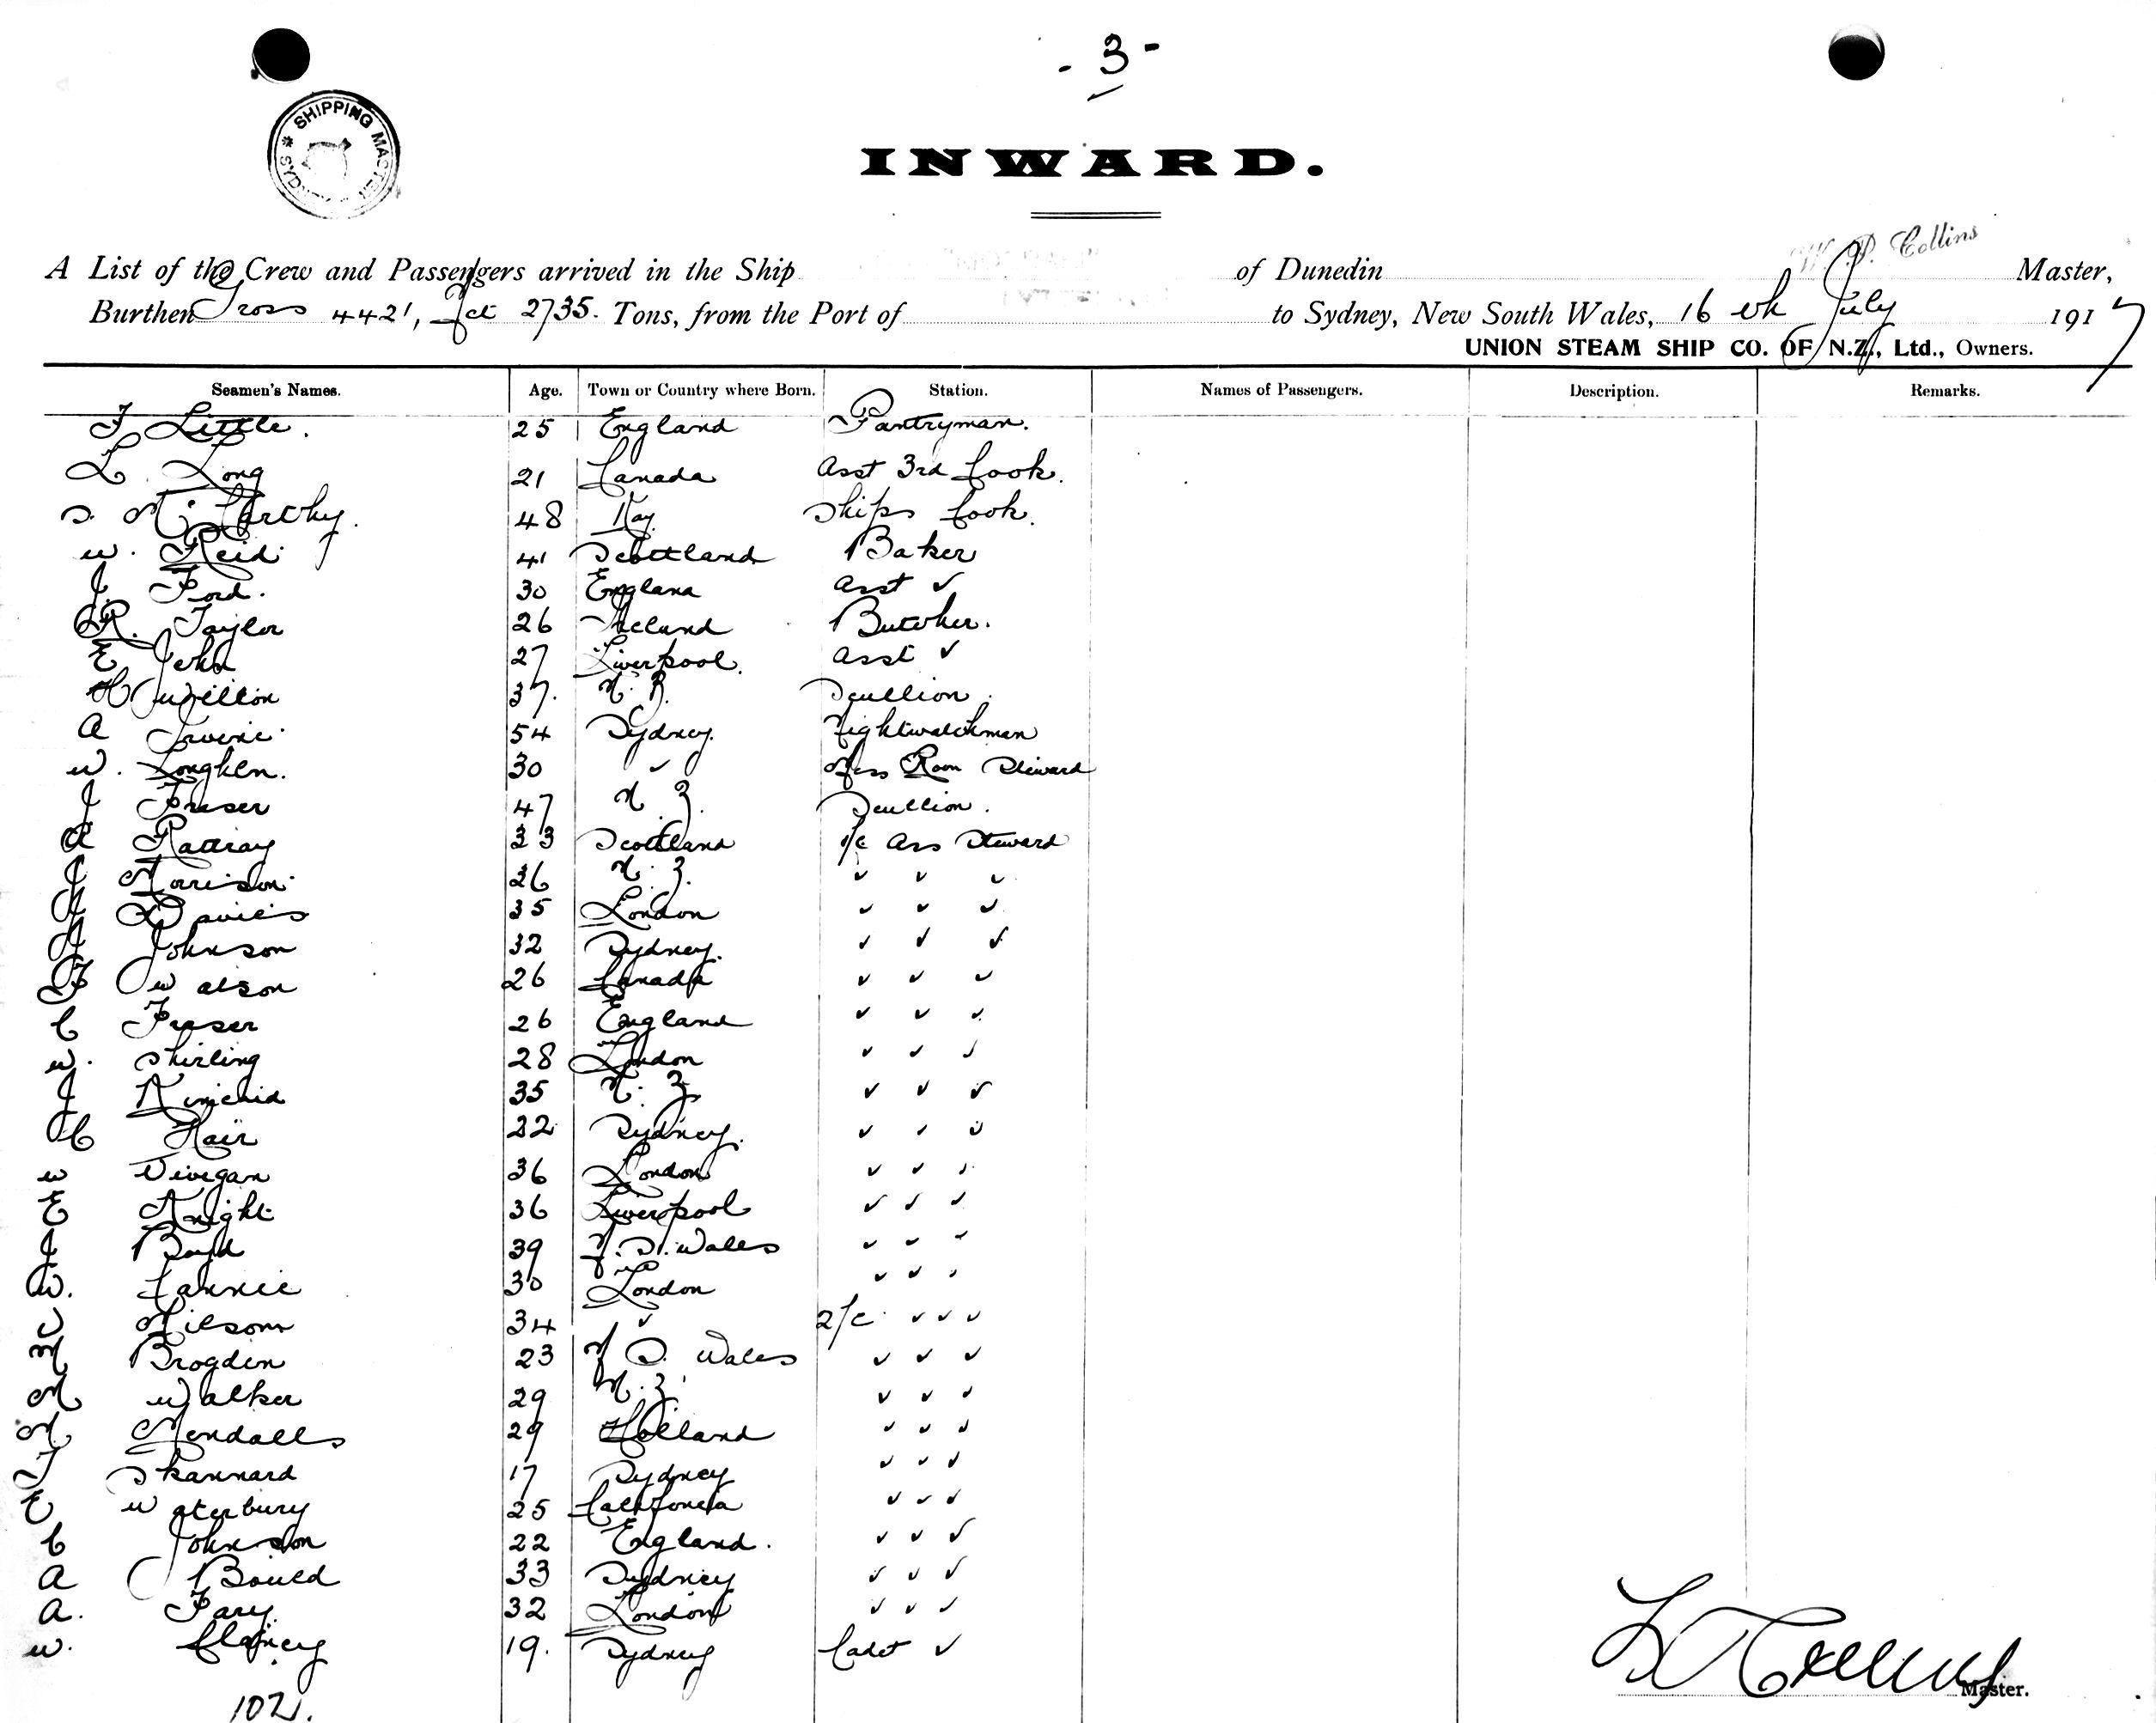 - 3 -
SHIPPING MASTER * SYDNEY
INWARD.
W. P. Collins
A List of the Crew and Passengers arrived in the Ship of Dunedin Master,
Burthen Gross 4421, Net 2735. Tons, from the Port of to Sydney, New South Wales, 16 th July 1917
UNION STEAM SHIP CO. OF N.Z., Ltd., Owners.
Seamen's Names. Age. Town or Country where Born. Station. Names of Passengers. Description. Remarks.
F Little. 25 England Pantryman.
L. Long 21 Canada Asst 3rd Cook.
D. McCarthy. 48 Ships Cook.
W. Reid. 41 Scottland Baker
J. Ford. 30 England Asst ✓
R. Taylor 26 Ireland Butcher.
E John 27 Liverpool. Asst ✓
H Willion 37. N. Z. Scullion.
A Irvine. 54 Sydney. Nightwatchman
W. Loughlin. 30 ✓ Mess Room Steward
J Fraser 47 N. Z. Scullion.
A Rattray 33 Scottland 1/c Ass Steward
J Morrison. 26 N. Z. ✓ ✓ ✓
J Davies 35 London ✓ ✓ ✓
J Johnson 32 Sydney. ✓ ✓ ✓
F Watson 26 Canada ✓ ✓ ✓
C Fraser 26 England ✓ ✓ ✓
W. Shirling 28 London ✓ ✓ ✓
J Kincaid 35 N. Z. ✓ ✓ ✓
C Hair 22 Sydney. ✓ ✓ ✓
W Vivegan 36 London ✓ ✓ ✓
E Knight 36 Liverpool ✓ ✓ ✓
J Boyd 39 N. S. Wales ✓ ✓ ✓
W. Cannie 30 London ✓ ✓ ✓
Milsom 34 ✓ 2/c. ✓ ✓ ✓
M Brogden 23 N S. Wales ✓ ✓ ✓
M Walker 29 N. Z. ✓ ✓ ✓
M Mendalls 29 Holland ✓ ✓ ✓
Skannard 17 Sydney ✓ ✓ ✓
E Waterbury 25 Califonia ✓ ✓ ✓
C Johnson 22 England. ✓ ✓ ✓
A Bould 33 Sydney ✓ ✓ ✓
A. Fary. 32 London ✓ ✓ ✓
W. Clancy 19. Sydney Cadet ✓
102.
Master.